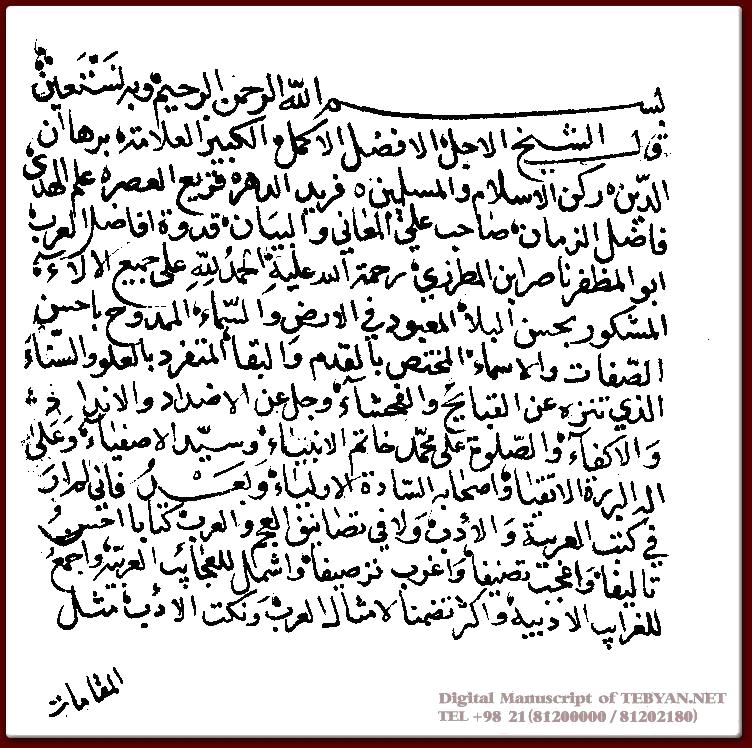 بسم الله الرحمن الرحيم وبه نستعين
قول الشيخ الاجل الافضل الاكمل الكبير العلامة برهان
الدين ركن الاسلام والمسلمين فريد الدهر قريع العصر علم الهدى
فاضل الزمان صاحب علمي المعاني والبيان قدوة افاضل العرب
ابو المظفر ناصر ابن المطرزي رحمة الله عليه الحمد لله على جميع الالاء
المشكور بحسن البلاء المعبود في الارض والسماء الممدوح باحسن
الصفات والاسماء المختص بالقدم والبقاء المتفرد بالعلو والسناء
الذي تنزه عن القبايح والفحشاء وجل عن الاضداد والانداد
والاكفاء والصلوة على محمد خاتم الانبياء وسيد الاصفياء وعلى
اله البررة الاتقياء واصحابه السادة الاولياء وبعد فاني لم ار
في كتب العربية والأدب ولا في تصانيف العجم والعرب كتابا احسن
تاليفا واعجب تصنيفا واغرب ترصيفا واشمل للعجايب العربية واجمع
للغرايب الادبية واكثر تضمنا لامثال العرب ونكت الادب مثل
المقامات
Digital Manuscript of TEBYAN.NET
TEL +98 21 (81200000 / 81202180)